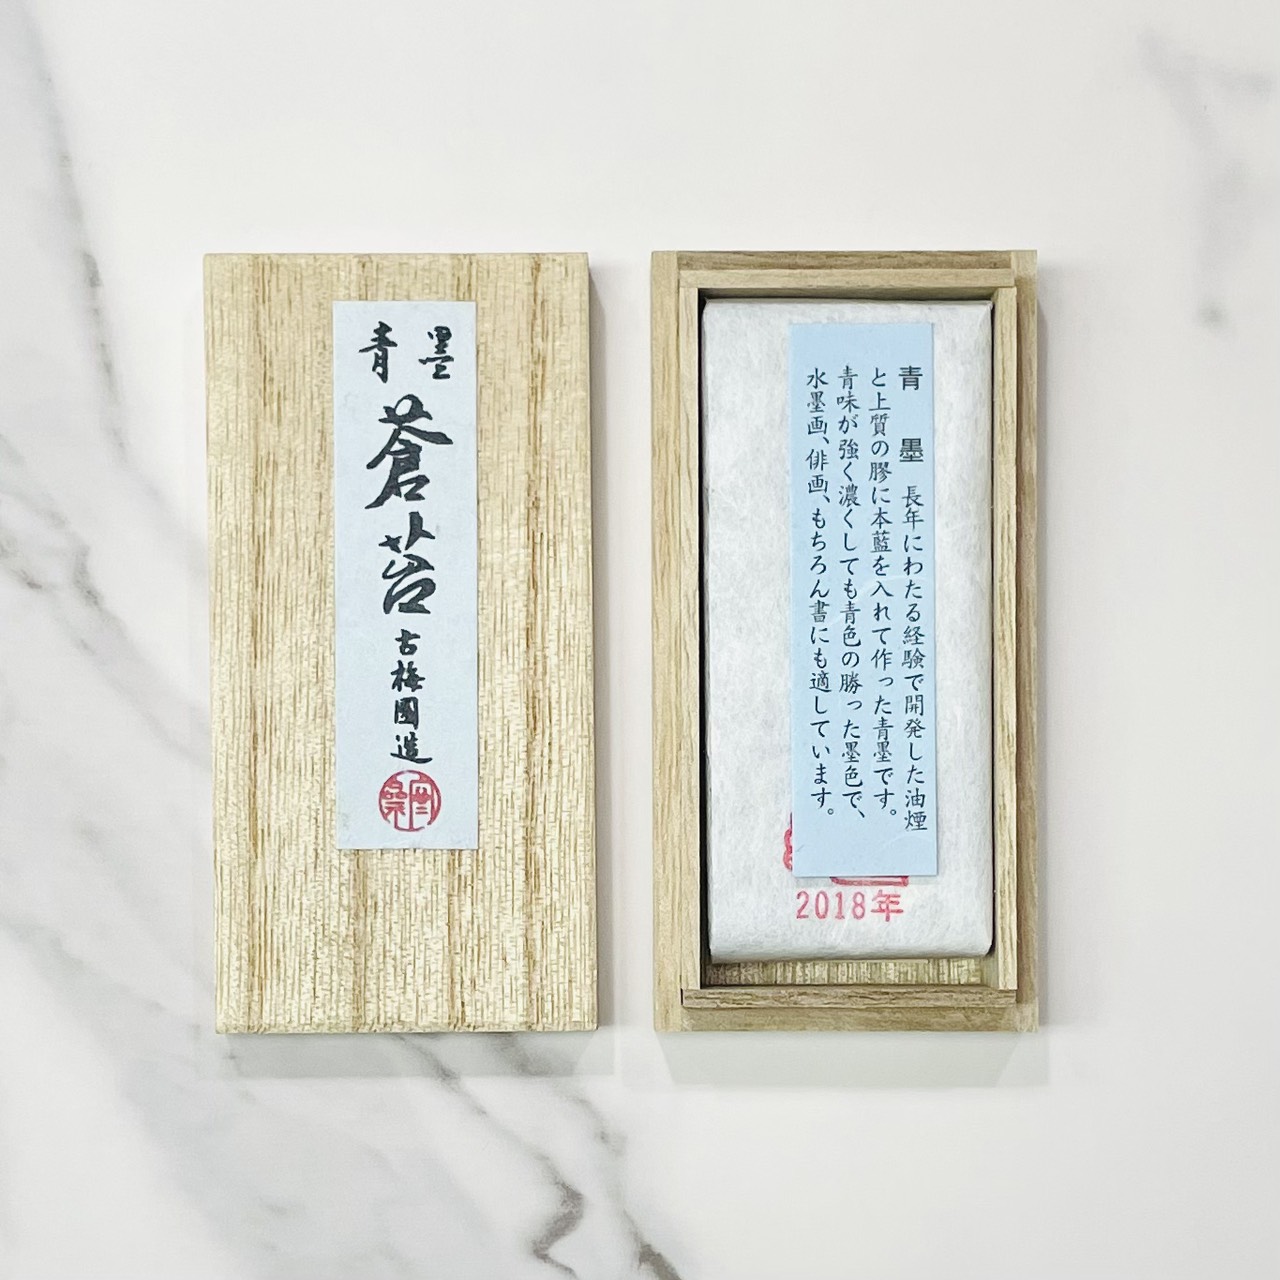 青墨
蒼苔
古梅園造
青 墨 長年にわたる経験で開発した油煙
と上質の膠に本藍を入れて作った青墨です。
青味が強く濃くしても青色の勝った墨色で、
水墨画、俳画、もちろん書にも適しています。
2018年